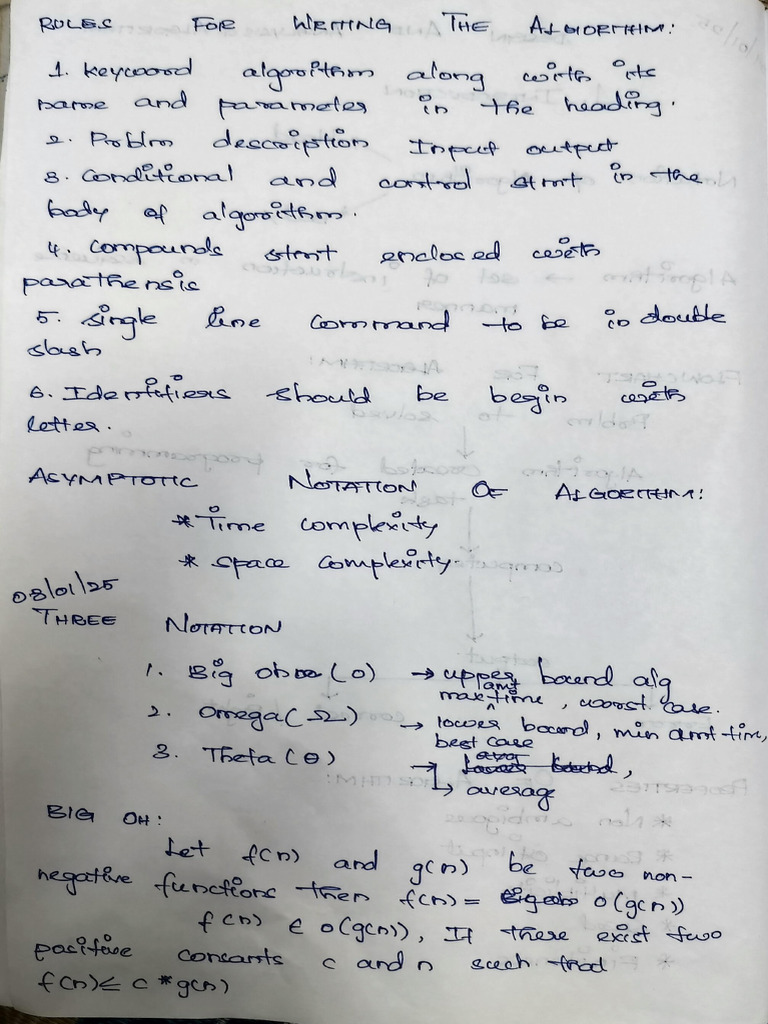 RULES FOR WRITING THE ALGIORITHM:
1. Keyword algorithm along with its
name and parameter in the heading.
2. Problm description Input output
3. Conditional and control stmt in the
body of algorithm.
4. Compounds stmt enclosed with
parathensis
5. Single line command to be in double
slash
6. Identifiers should be begin with
letter.
ASYMPTOTIC NOTATION OF ALGIORITHM:
* Time complexity
* Space complexity.
08/01/25
THREE NOTATION
1. Big oh (O) → upper bound alg
max amt time, worst case.
2. Omega (Ω) → lower bound, min amt tim,
best case
3. Theta (θ) → avg lower bound,
↳ average
BIG OH:
Let f(n) and g(n) be two non-
negative functions then f(n) = O(g(n))
f(n) ∈ O(g(n)), If there exist two
positive consants c and n such that
f(n) ≤ c * g(n)